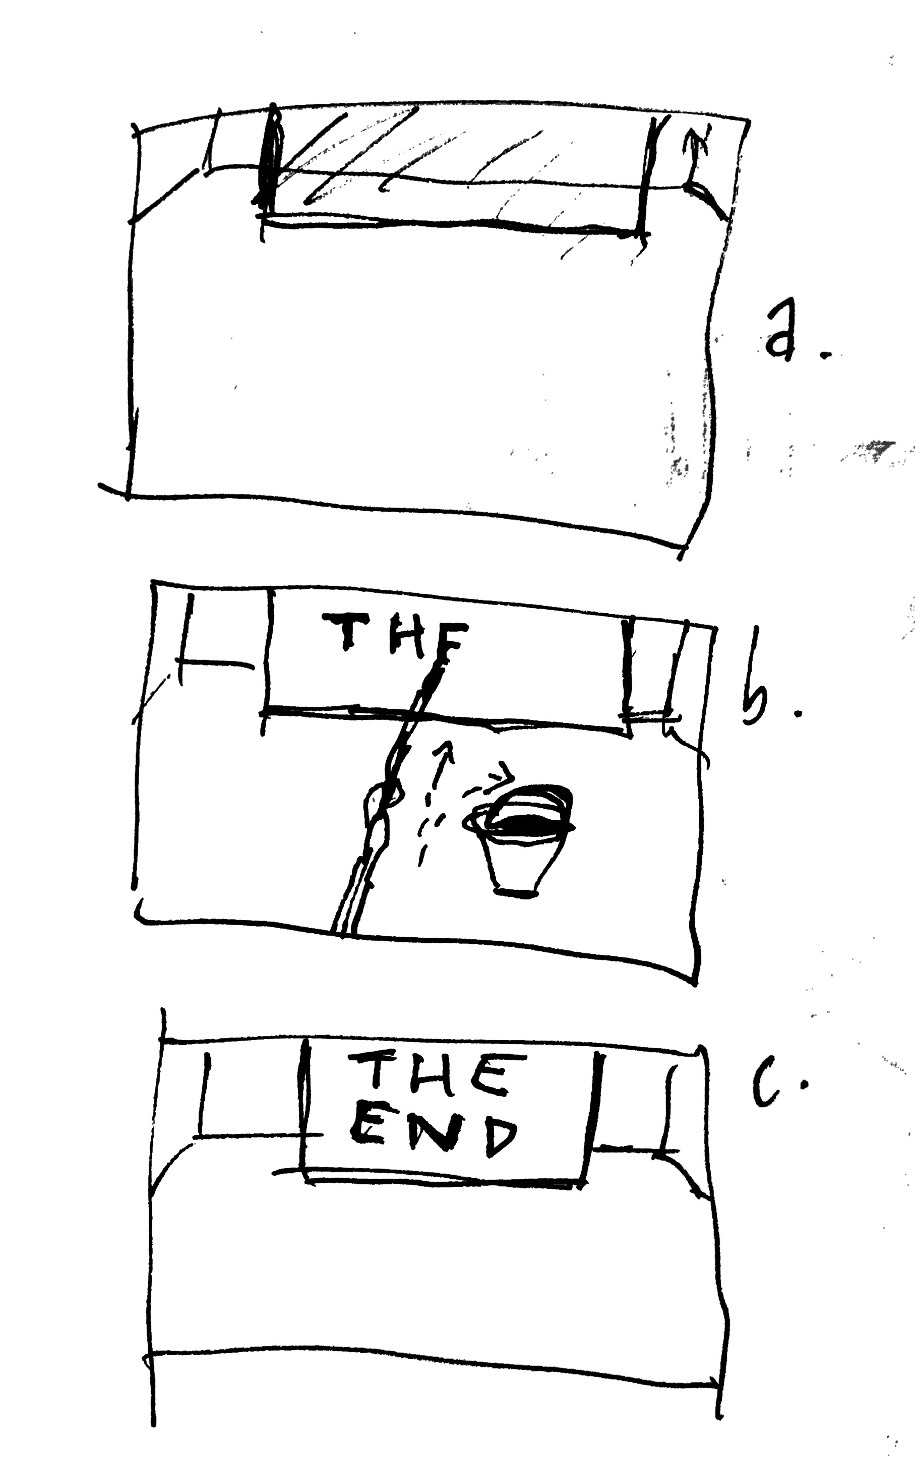 a.
THE
b.
c.
THE
END